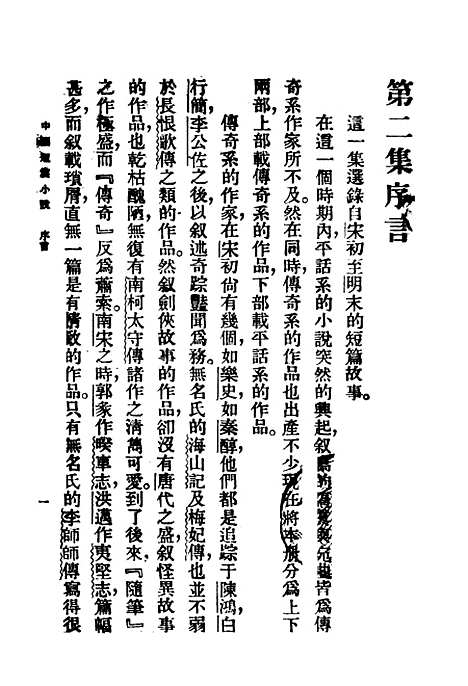 第二集序言
這一集選錄自宋初至明末的短篇故事。
在這一個時期內平話系的小說突然的興起,叙皆爲傳
奇系作家所不及。然在同時,傳奇系的作品也出產不少,現在將本册分爲上下
兩部,上部載傳奇系的作品,下部載平話系的作品。
傳奇系的作家在宋初尙有幾個,如樂史,如秦醇,他們都是追踪于陳鴻,白
行簡,李公佐之後,以叙述奇踪豔聞爲務。無名氏的海山記及梅妃傳也並不弱
於長恨歌傳之類的作品。然叙劍俠故事的作品卻沒有唐代之盛,叙怪異故事
的作品也乾枯醜陋,無復有南柯太守傳諸作之清雋可愛。到了後來,『隨筆』
之作極盛,而『傳奇』反爲蕭索。南宋之時,郭彖作睽車志,洪邁作夷堅志,篇幅
甚多,而叙載瑣屑,直無一篇是有情致的作品。只有無名氏的李師師傳寫得很
中國短篇小說 序言
一